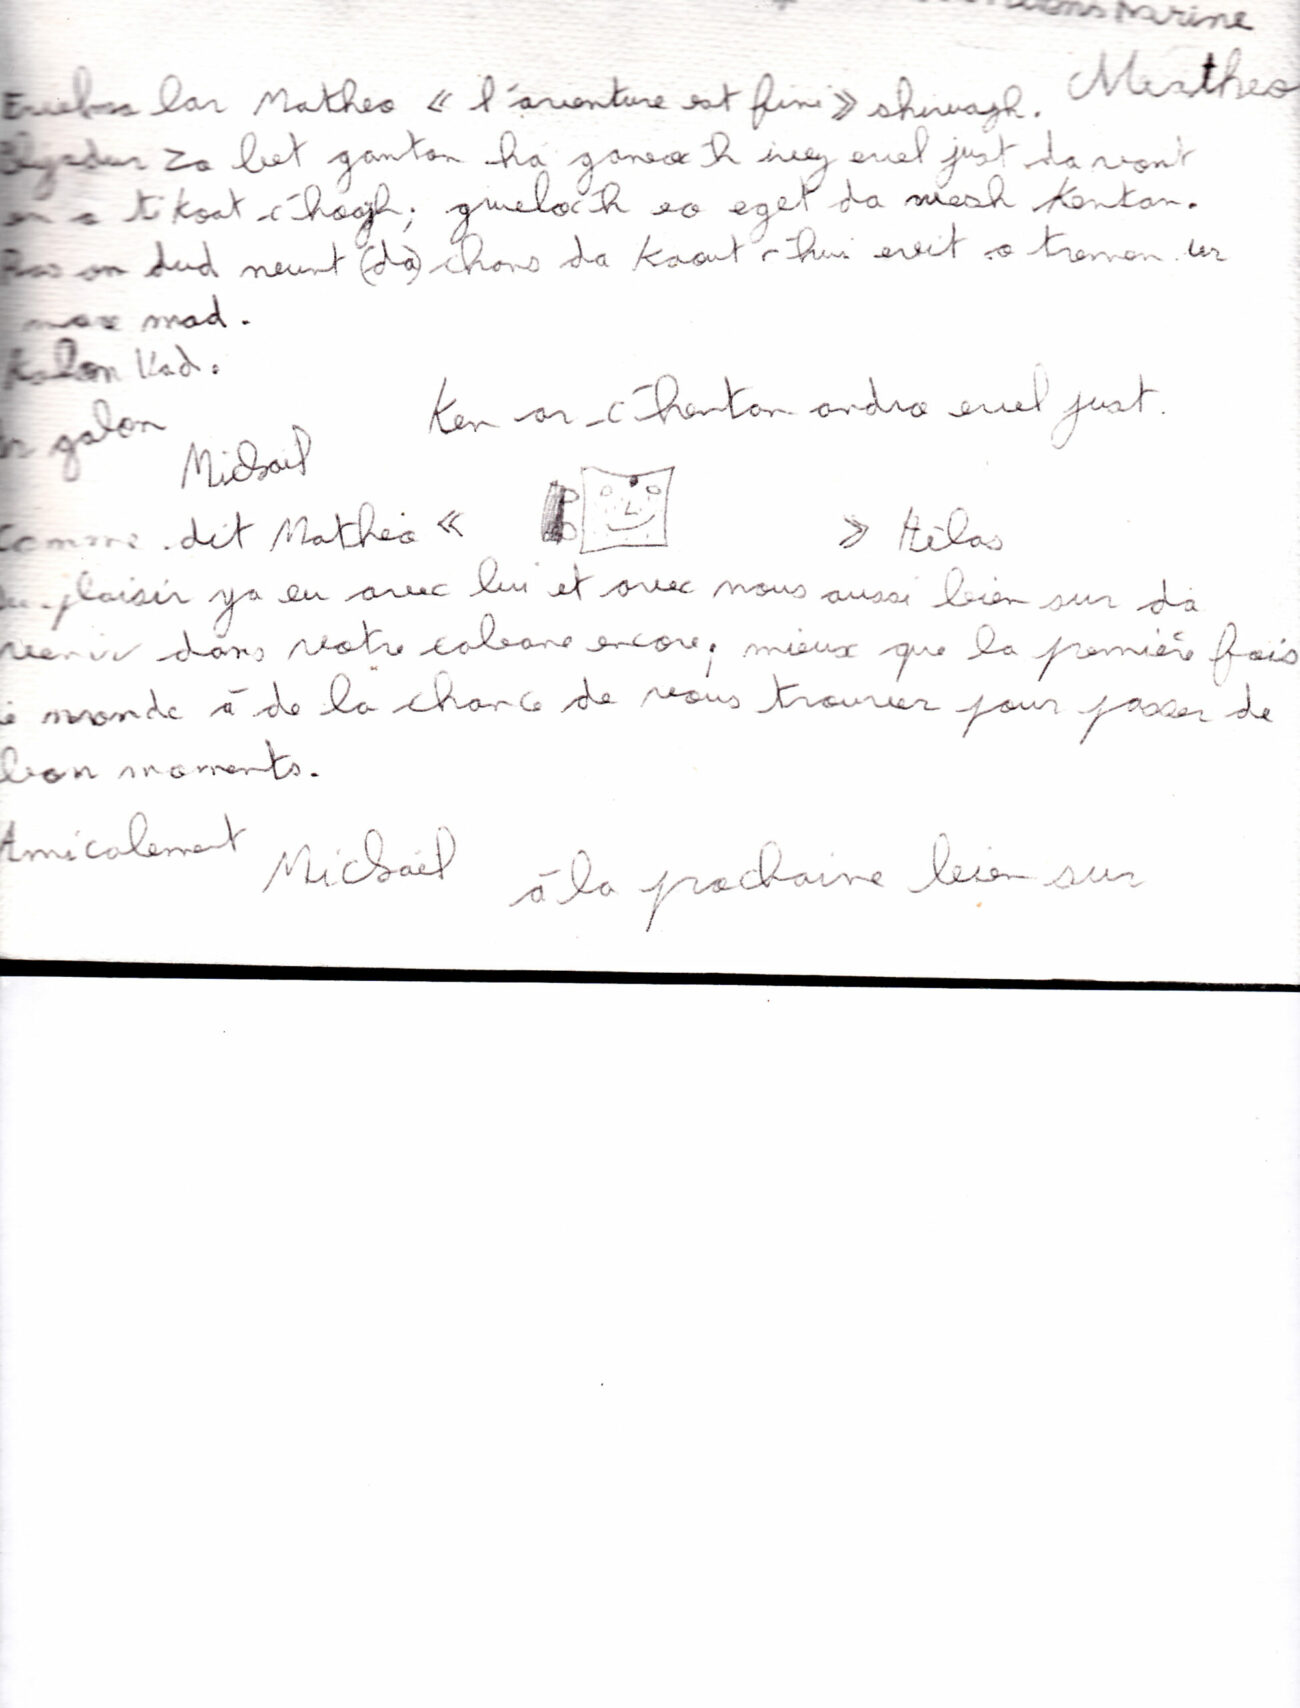 Marine
Matheo
lar Matheo « l'aventure est fini » shiwazh.
Plijadur zo bet gantan ha ganeoc'h ivez evel just da vont
en o ti koat c'hoazh; gweloc'h eo eget da wezh kentan.
an dud neunt (dà) chans da kaout c'hwi evit o tremen ur
mare mad.
Kalon Vad.
galon
Ken ar c'hentan andra evel just.
Mickaël
Comme dit Matheo « » Hélas
Du plaisir ya eu avec lui et avec nous aussi bien sur dà
venir dans votre cabane encore, mieux que la première fois
monde à de la chance de vous trouver pour passer de
bon moments.
Amicalement
Mickaël
à la prochaine bien sur